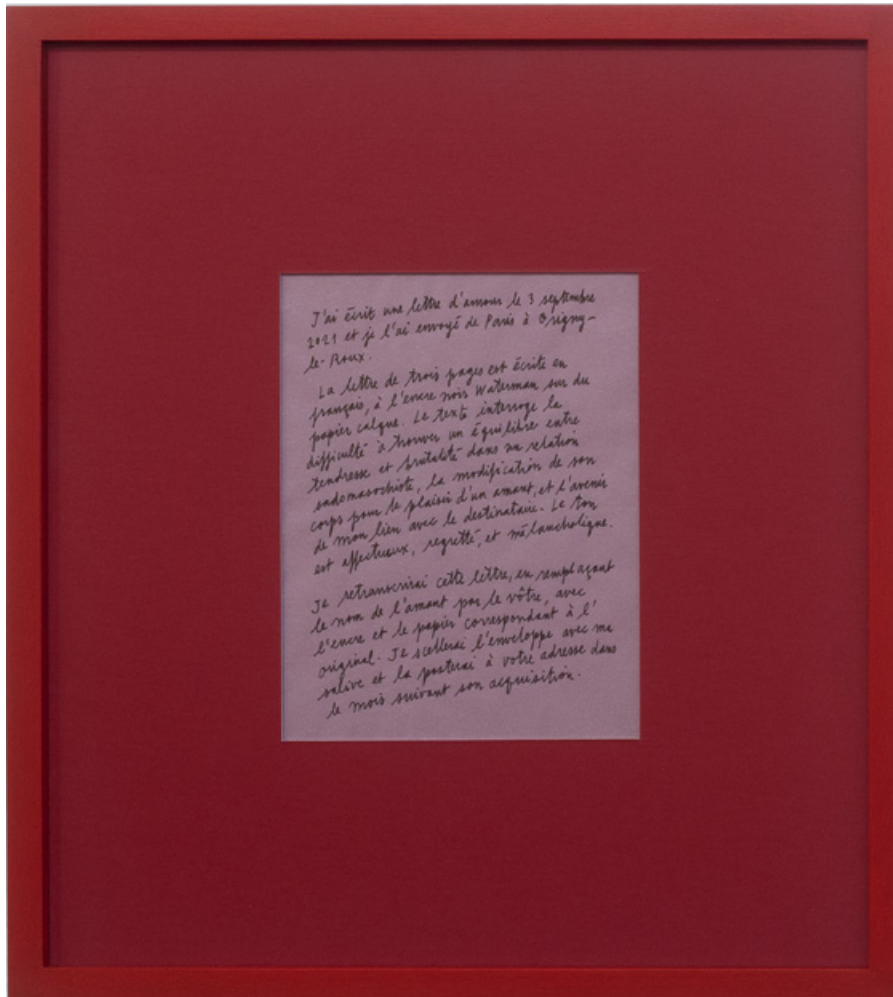 J'ai écrit une lettre d'amour le 3 septembre
2021 et je l'ai envoyé de Paris à Origny-
le-Roux.
La lettre de trois pages est écrite en
français, à l'encre noir Waterman sur du
papier calque. Le texte interroge la
difficulté à trouver un équilibre entre
tendresse et brutalité dans une relation
sadomasochiste, la modification de son
corps pour le plaisir d'un amant, et l'avenir
de mon lien avec le destinataire. Le ton
est affectueux, regretté, et mélancholique.
Je retranscrirai cette lettre, en remplaçant
le nom de l'amant par le vôtre, avec
l'encre et le papier correspondant à l'
original. Je scellerai l'enveloppe avec ma
salive et la posterai à votre adresse dans
le mois suivant son acquisition.